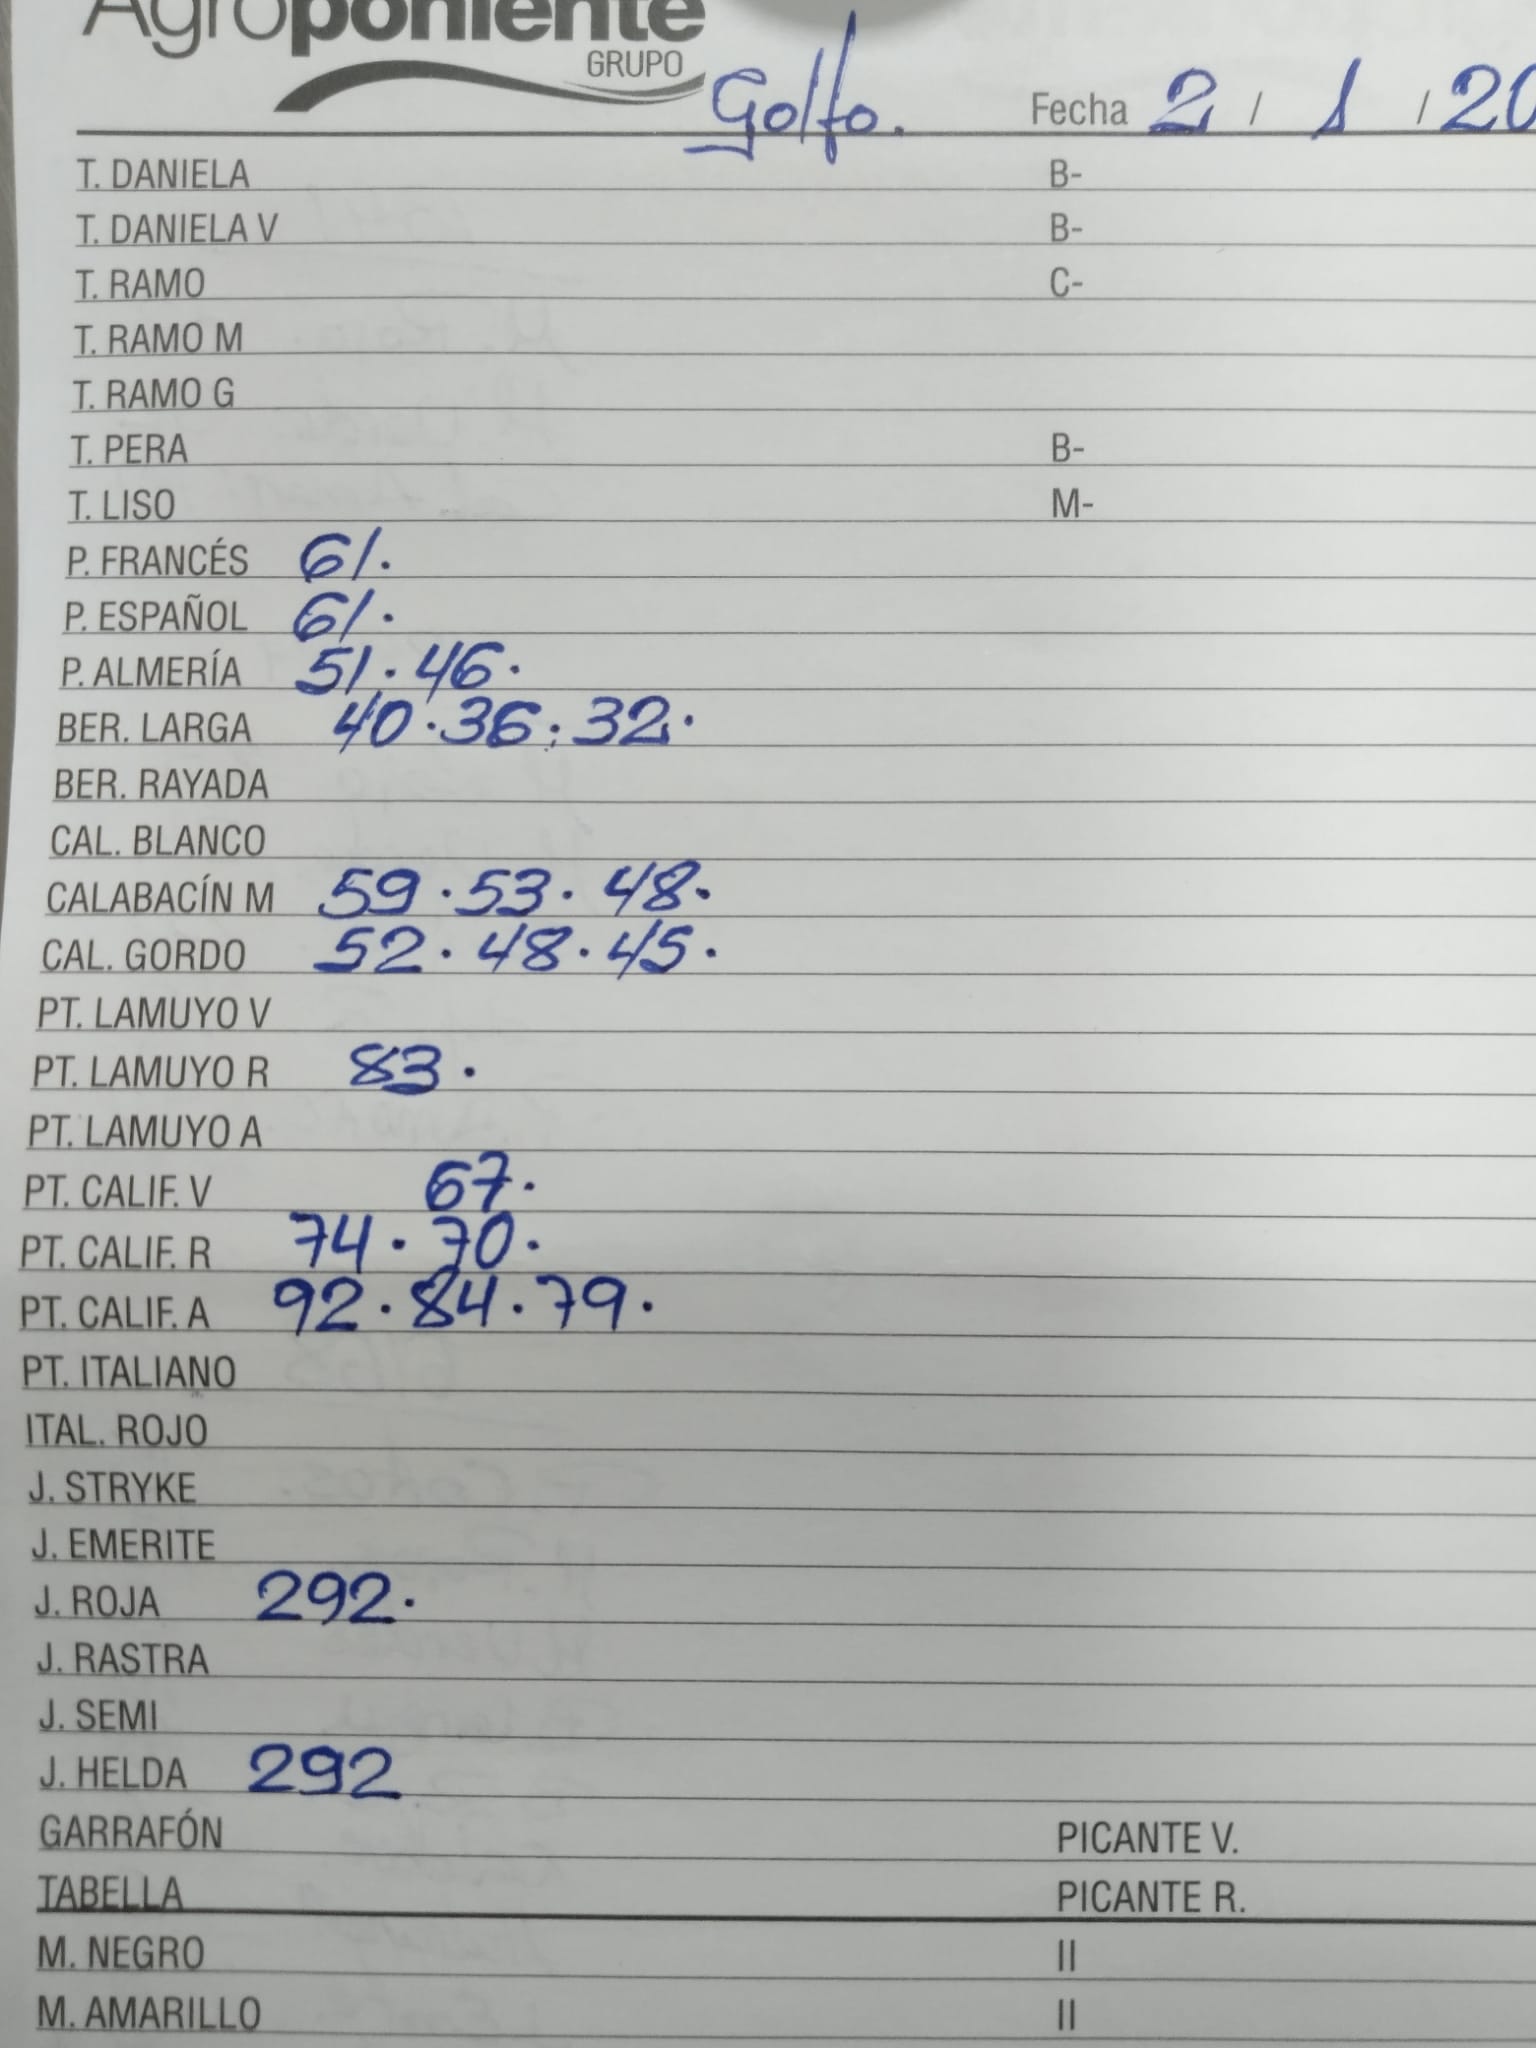 Agroponiente
GRUPO
Golfo. Fecha 2 / 1 / 20
T. DANIELA B-
T. DANIELA V B-
T. RAMO C-
T. RAMO M
T. RAMO G
T. PERA B-
T. LISO M-
P. FRANCÉS 61.
P. ESPAÑOL 61.
P. ALMERÍA 51. 46.
BER. LARGA 40. 36. 32.
BER. RAYADA
CAL. BLANCO
CALABACÍN M 59. 53. 48.
CAL. GORDO 52. 48. 45.
PT. LAMUYO V
PT. LAMUYO R 83.
PT. LAMUYO A
PT. CALIF. V 67.
PT. CALIF. R 74. 70.
PT. CALIF. A 92. 84. 79.
PT. ITALIANO
ITAL. ROJO
J. STRYKE
J. EMERITE
J. ROJA 292.
J. RASTRA
J. SEMI
J. HELDA 292
GARRAFÓN PICANTE V.
TABELLA PICANTE R.
M. NEGRO II
M. AMARILLO II